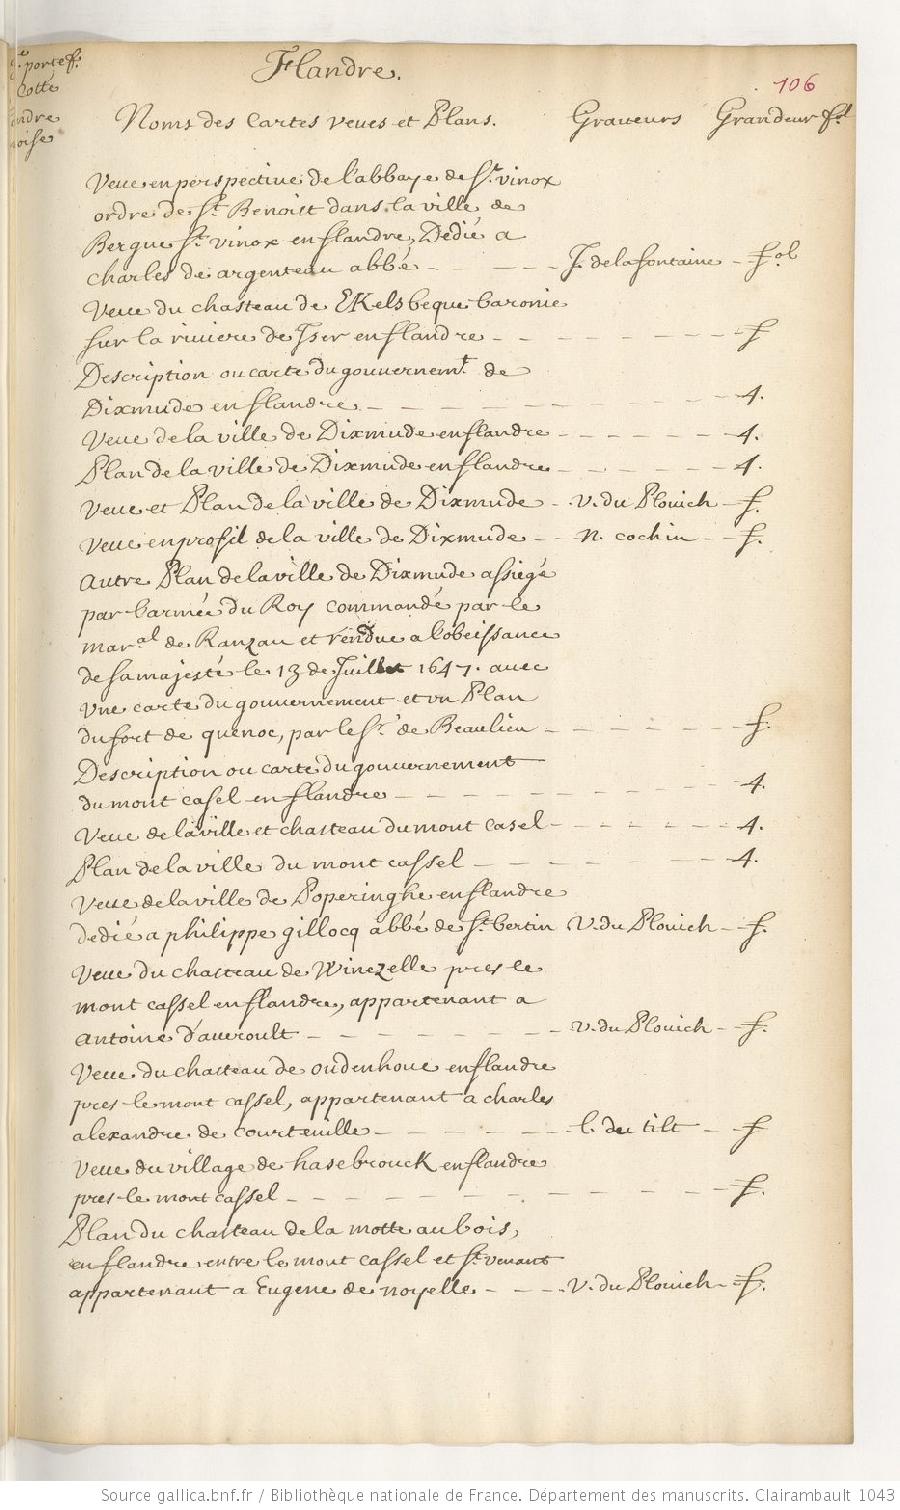 portef.
Cotté
Flandre.
106
Noms des Cartes veues et Plans. Graveurs Grandeur f.l
Veue en perspective de l'abbaye de St. vinox
ordre de St. Benoist dans la ville de
Bergue St. vinox en flandre, Dedié a
charles de argenteau abbé - - - - J. delafontaine - fol
Veue du chasteau de EKelsbeque baronie
sur la riviere de Iser en flandre - - - - - - - f
Description ou carte du gouvernemt. de
Dixmude en flandre - - - - - - - 4.
Veue de la ville de Dixmude en flandre - - - - - - 4.
Plan de la ville de Dixmude en flandre - - - - - - 4.
Veue et Plan de la ville de Dixmude - v. du Plouich - f.
Veue en profil de la ville de Dixmude - - n. cochin - - f.
Autre Plan de la ville de Dixmude assiegé
par l'armée du Roy commandé par le
maral de Ranzau et rendue a l'obeissance
de sa majesté le 13 de Juillet 1647. avec
vne carte du gouvernement et vn Plan
du fort de quenoc, par le Sr. de Beaulieu - - - - - - f.
Description ou carte du gouvernement
du mont casel en flandre - - - - - - - 4.
Veue de la ville et chasteau du mont casel - - - - - - 4.
Plan de la ville du mont cassel - - - - - - 4.
Veue de la ville de Poperinghe en flandre
dedié a philippe gillocq abbé de St. bertin V. du Plouich - f.
Veue du chasteau de Winezelle pres le
mont cassel en flandre, appartenant a
Antoine d'averoult - - - - - - v. du Plouich - f.
Veue du chasteau de oudenhoue en flandre
pres le mont cassel, appartenant a charles
alexandre de courteuille - - - - - l. du tilt - f
Veue du village de hasebrouck en flandre
pres le mont cassel - - - - - - - - f.
Plan du chasteau de la motte au bois,
en flandre entre le mont cassel et St. venant
appartenant a Eugene de noyelle - - - v. du Plouich - f.
Source gallica.bnf.fr / Bibliothèque nationale de France. Département des manuscrits. Clairambault 1043